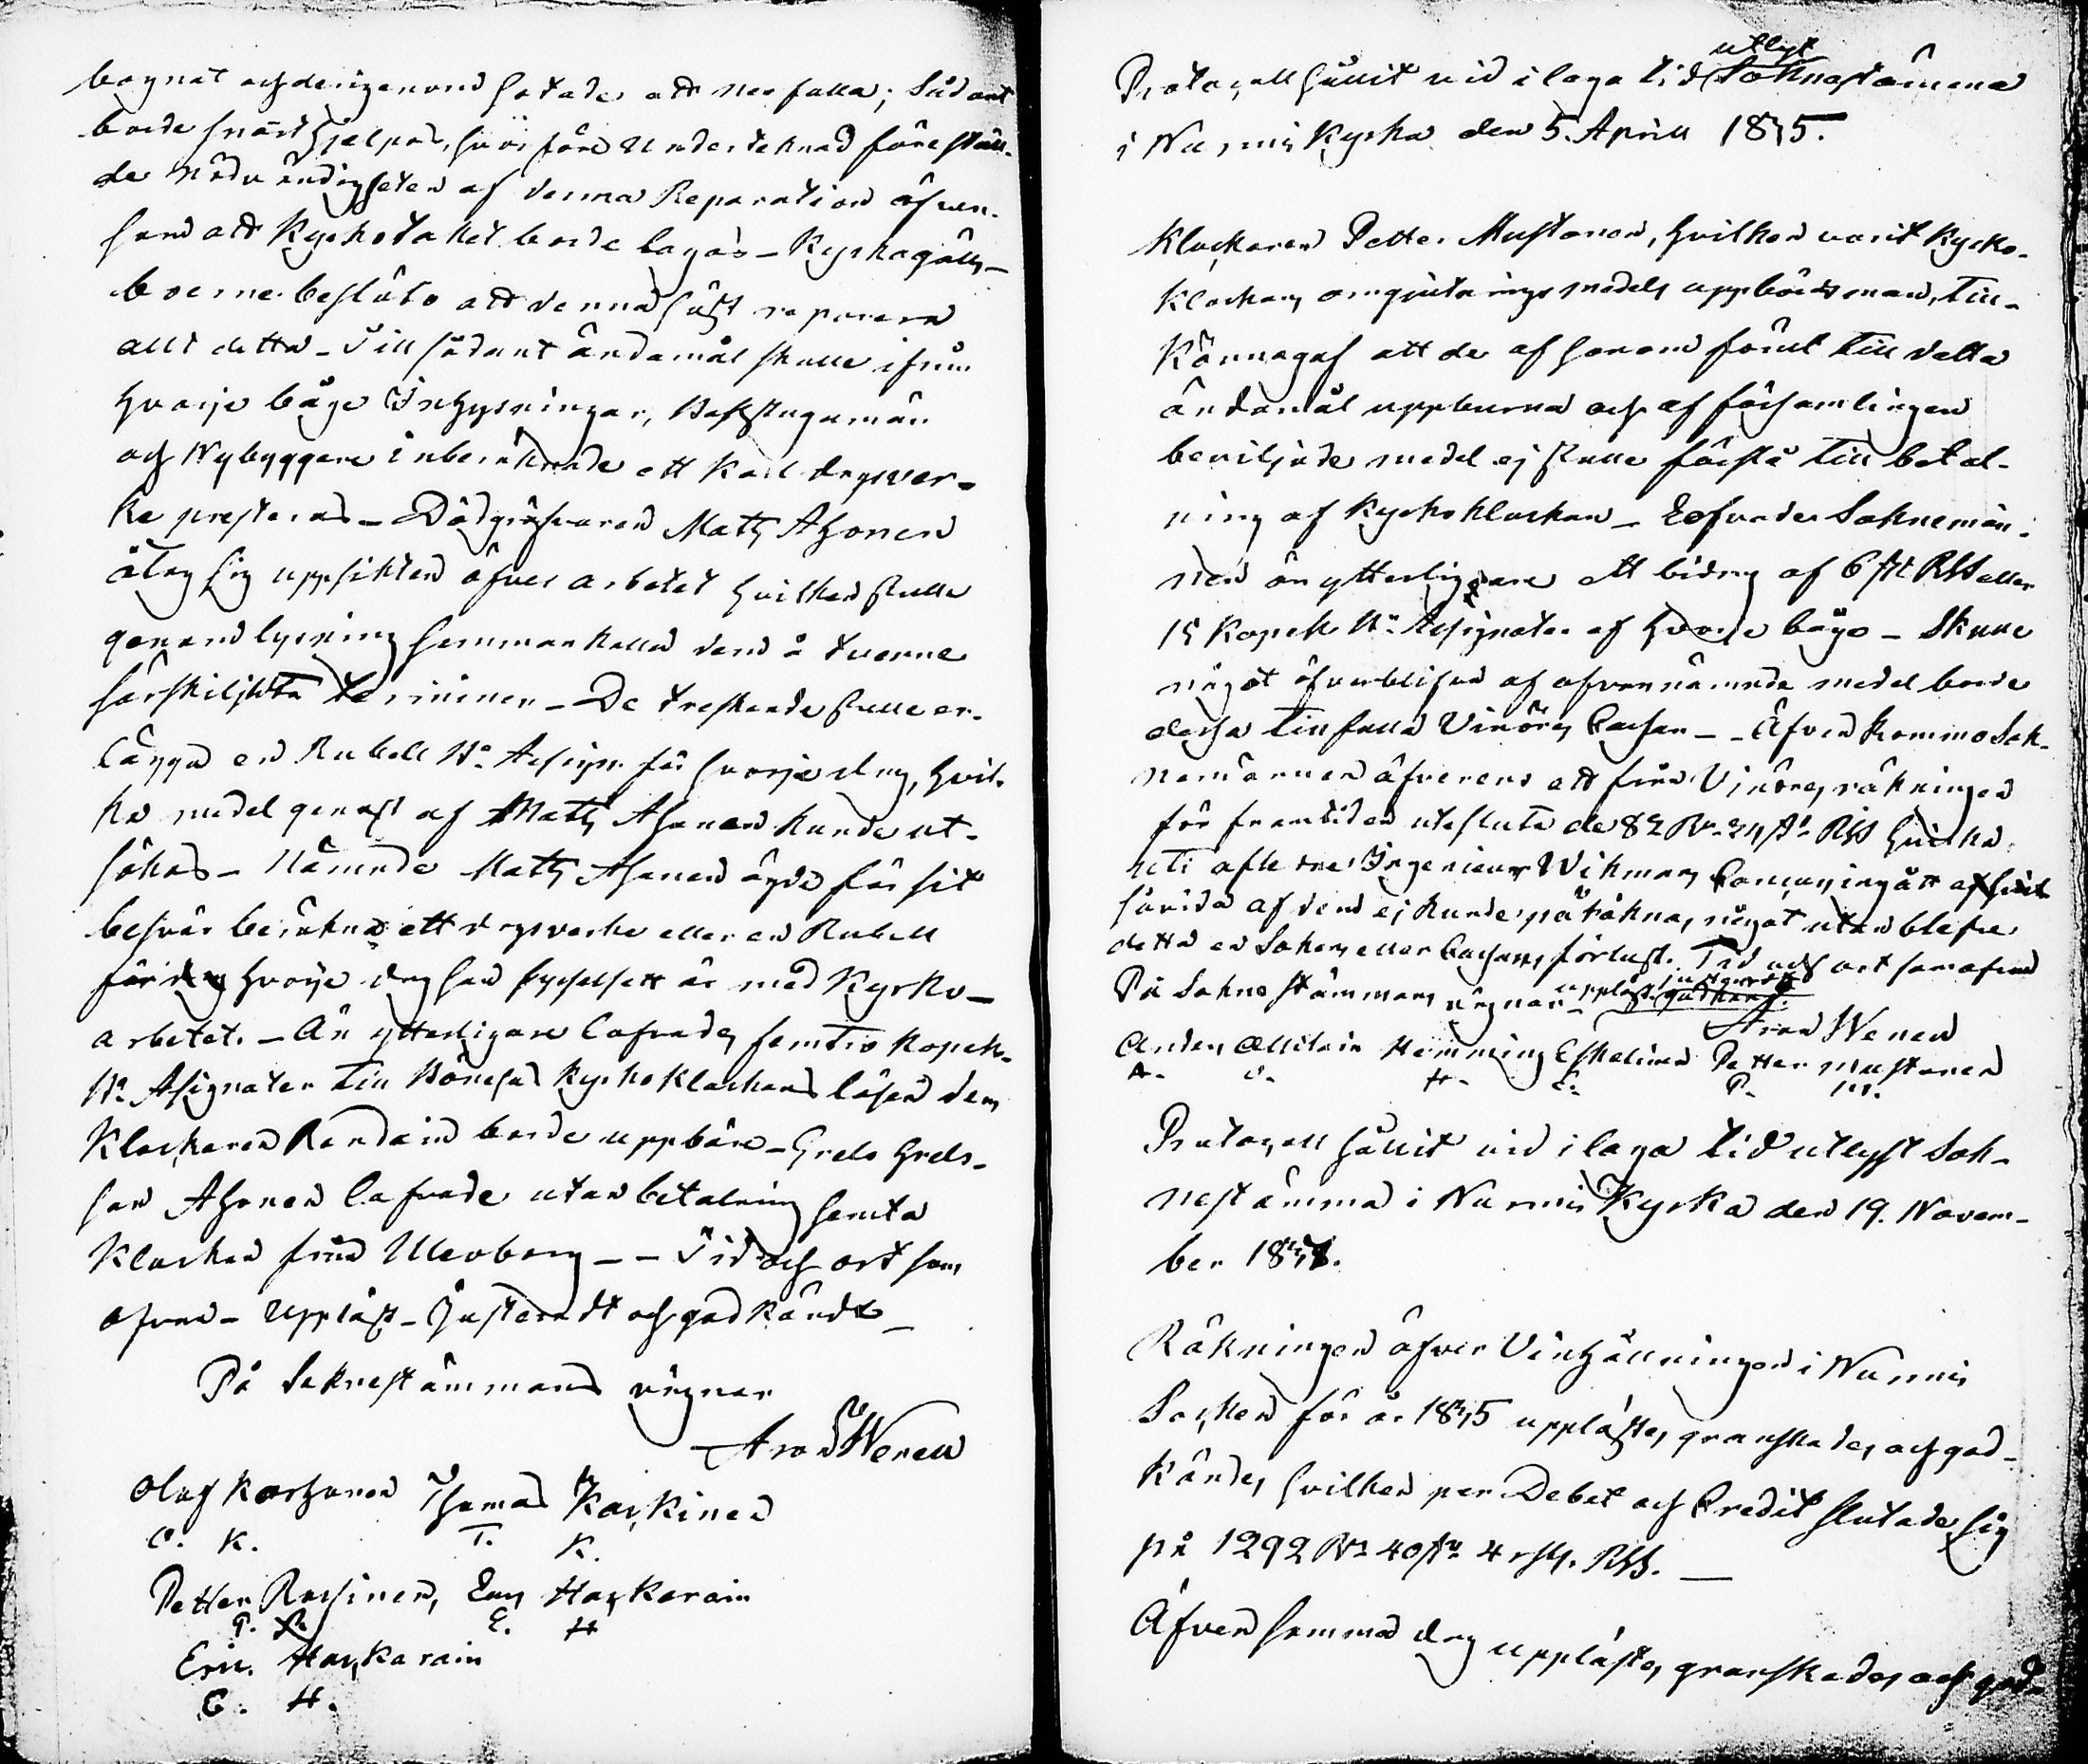 bognat och derigenom hotade att nerfalla; Sådant
borde snart hjelpas, hvarföre Undertecknad förestäl-
de nödvändigheten af denna Reparation äfven-
som att Kyrkotaket borde lagas – Kyrkogälls-
boerne beslöto att denna höst reparera
allt detta – Till sådant ändamål skulle ifrån
hvarje båge Inhysningar, Backstugumän
och Nybyggare inberäknade ett Karl dagsver-
ke presteras – Dödgräfvaren Matts Ahonen
åtog sig uppsikten öfver arbetet hvilken skulle
genom lysning sammankalla dem å tvenne
särskiljta terminer – De treskande skulle er-
lägga en Rubell Bo Assign. för hvarje dag, hvil-
ka medel genast af Matts Ahonen kunde ut-
sökas – Nämnde Matts Ahonen ägde för sit
besvär beräkna ett dagsverke eller en Rubell
för hvarje dag han sysselsatt är med Kyrko-
arbetet. – Än ytterligare lofvades femtio Kopek
Bo Assignater till Kyrkoklockans lösen dem
Klockaren Randain borde uppbära – Grels Grels-
son Ahonen lofvade utan betalning hemta
Klockan från Uleoborg – – Tid och ort som
ofvan – Uppläst – Justeradt och godkändt –
På Soknestämmans vägnar
Aron Wenell
Olof Korhonen Thomas Karkinen
O. K. T. K.
Petter Rossinen, Eric Hackarain
P. R. E. H
Eric Hackarain
E. H.
Protocoll hållit vid i laga tid utlyst Soknestämma
i Nurmis Kyrka den 5. Aprill 1845.
Klockaren Petter Mustonen, hvilken varit Kyrko-
Klockans omgjutnings medels uppbördsman, till-
Kännagaf att de af honom förut till detta
ändamål uppburna och af församlingen
beviljade medel ej skulle förslå till betal-
ning af Kyrkoklockan – Lofvade Soknemän-
nen än ytterliggare ett bidrag af 6 st. RSS eller
15 Kopek Bo Assignater af hvarje båge – Skulle
något öfverblifva af ofvannämnde medel borde
dessa tillfalla Vinöres Cassan – – Äfven kommo Sok-
nemännen öfverens att från Vinöres räkningen
för framtiden utesluta de 82 Rr 24 st RSS hvilka
uti aflednes Ingenieur Wikmans Concurs ingått
såvida af dem ej kunde påräknas något utan blefve
detta en Sokens eller Cassans förlust. Tid och ort som ofvan
På Sokne stämmans vägnar – uppläst justeradt godkändt.
Aron Wenell
Anders Ollilain Hemming Eskelinen Petter Mustonen
A. O. H. E. P. M.
Protocoll hållit vid i laga tid utlyst Sok-
nestämma i Nurmis Kyrka den 19. Novem-
ber 1848.
Räkningen öfver Vinhållningen i Nurmis
Socken för år 1845 upplästes, granskades, och god-
Kändes, hvilken per Debet och Credit slutade sig
på 1292 Rr 40 st 4 rst. RSS. –
Äfven samma dag upplästes, granskades och god-